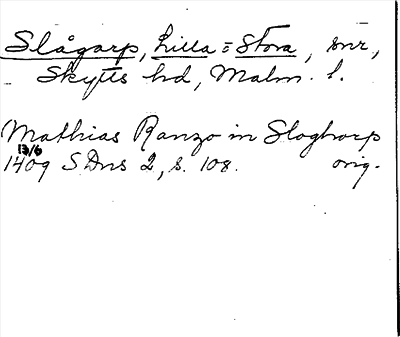 Slågarp, Lilla = Stora, snr,
Skytts hd, Malm. l.
Mathias Ranzo in Sloghorp
13/6
1409 SDns 2, s. 108. orig.